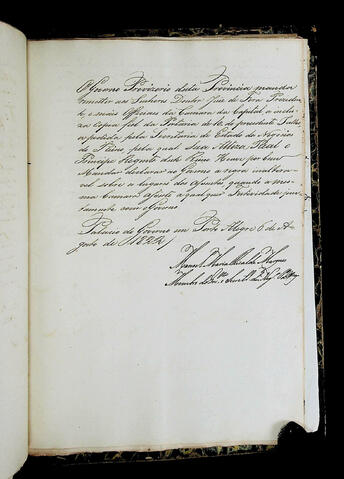 O Governo Provizorio desta Provincia manda
remetter aos Senhores Doutor Juiz de Fora Prezidente
e mais Officiaes da Camara da Capital a incluza
copia fiel da Portaria de 16 do precedente Julho
expedida pela Secretaria de Estado dos Negocios
do Reino pela qual Sua Alteza Real o
Principe Regente deste Reino Houve por bem
Mandar declarar ao Governo a regra inalteravel
sobre o lugar dos quando a mesma
Camara assista a qualquer juntamente
com o Governo
Palacio do Governo em Porto Alegre 6 de Agosto
de 1822
Manoel Maria Ricalde Marques
Membro do e